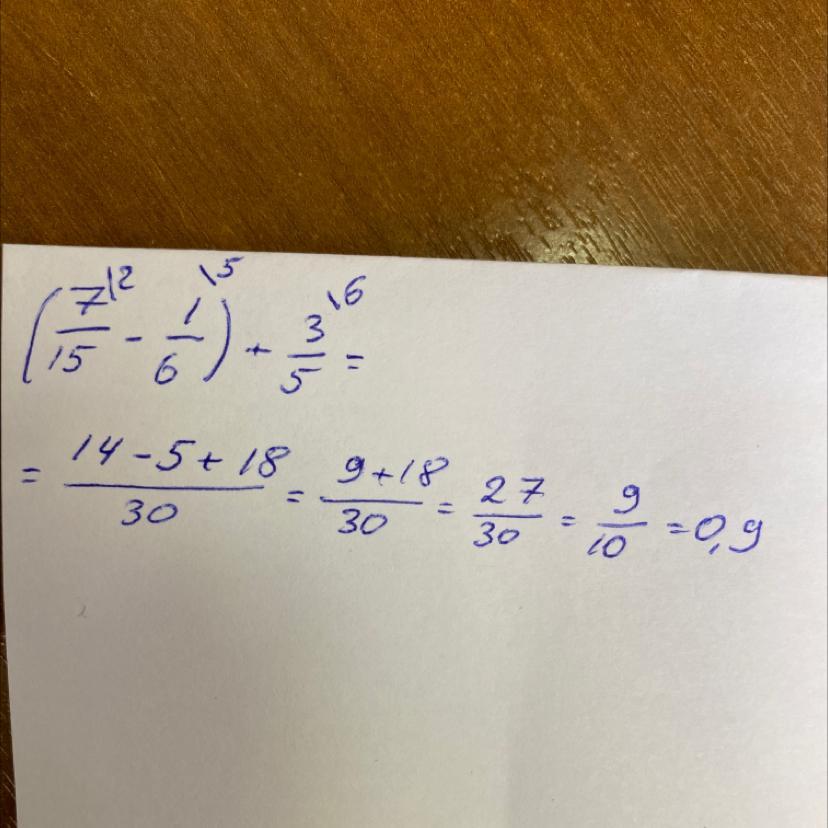 (7\2/15 - 1\5/6) + 3\6/5 =
= 14-5+18/30 = 9+18/30 = 27/30 = 9/10 = 0,9